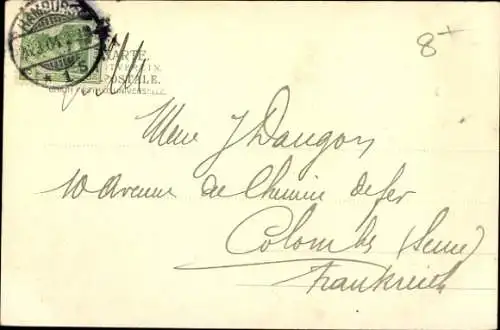 HAMBURG
1
8
KARTE.
POSTALE.
UNION POSTALE UNIVERSELLE.
Mme J Daugon
10 Avenue de Chemin de fer
Colombes (Seine)
Frankreich